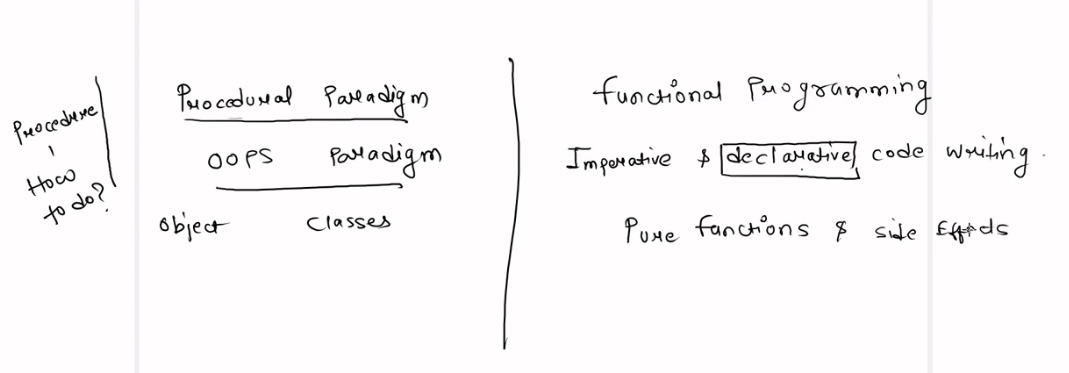 Procedure
How
to do?
Procedural Paradigm
OOPS Paradigm
Object Classes
functional Programming
Imperative & declarative code writing.
Pure functions & side Effects